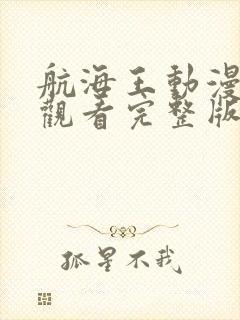 航海王動漫
觀看完整版
孤星不我